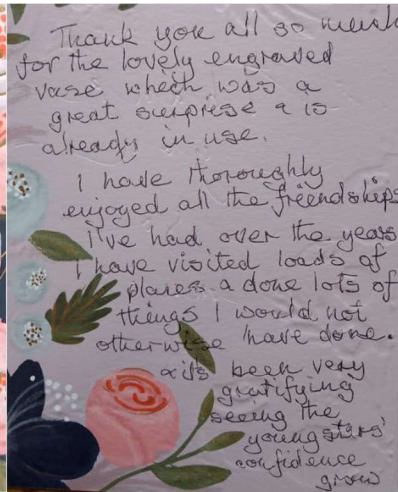 Thank you all so much
for the lovely engraved
vase which was a
great surprise & is
already in use.
I have thoroughly
enjoyed all the friendships
I've had over the years
I have visited loads of
places & done lots of
things I would not
otherwise have done.
& it's been very
gratifying
seeing the
youngsters'
confidence
grow